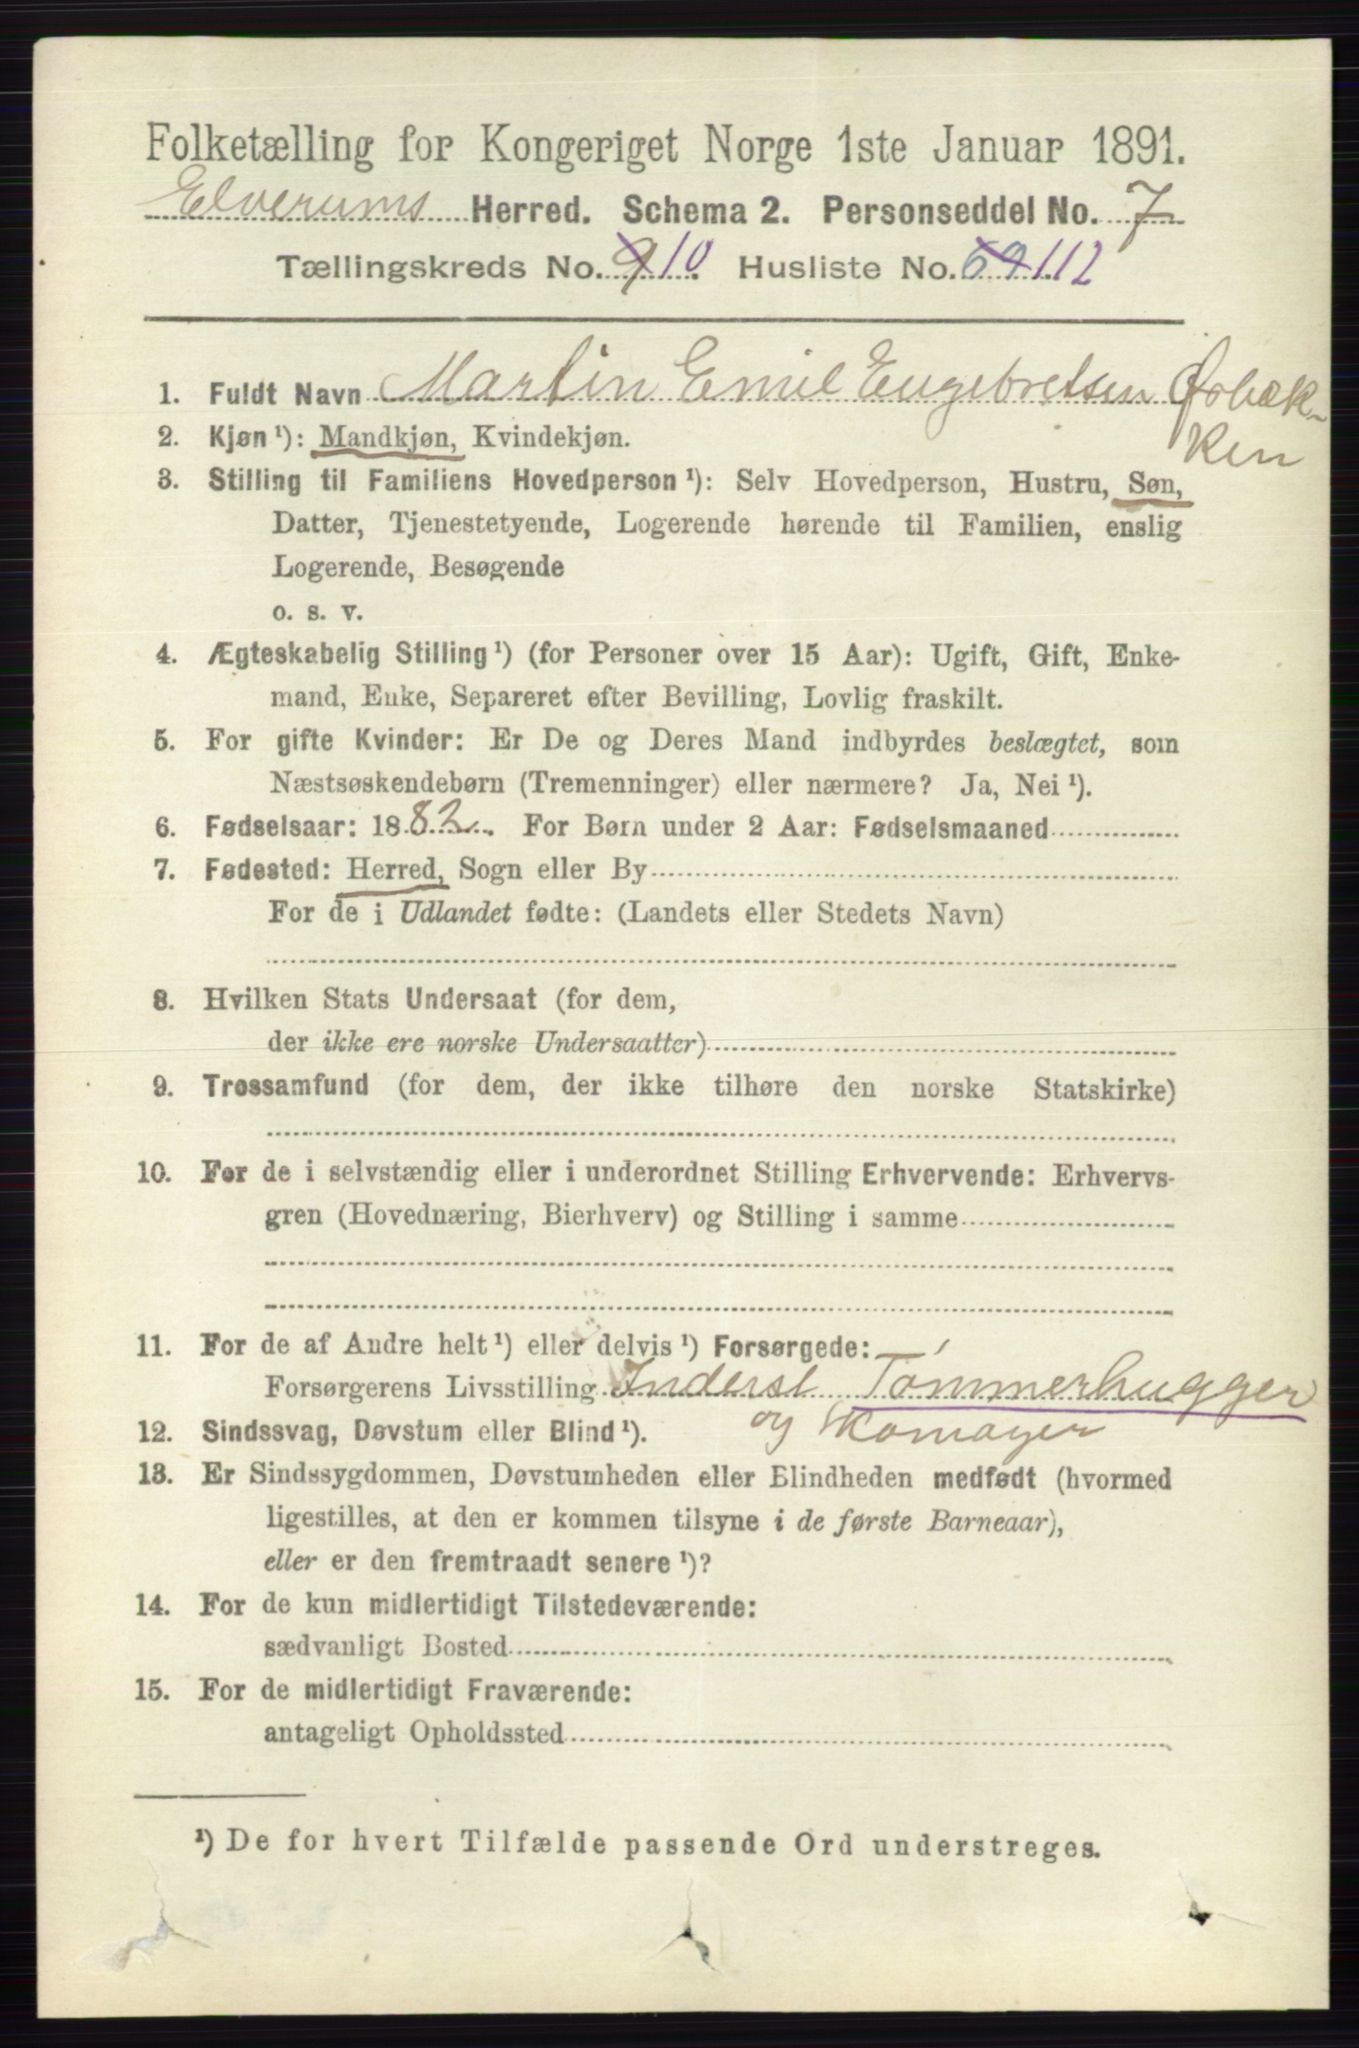 Folketælling for Kongeriget Norge 1ste Januar 1891.
Elverums Herred. Schema 2. Personseddel No. 7
Tællingskreds No. 9 10 Husliste No. 69 112
1. Fuldt Navn Martin Emil Engebretsen Øobæk-
ken
2. Kjøn¹): Mandkjøn, Kvindekjøn.
3. Stilling til Familiens Hovedperson¹): Selv Hovedperson, Hustru, Søn,
Datter, Tjenestetyende, Logerende hørende til Familien, enslig
Logerende, Besøgende
o. s. v.
4. Ægteskabelig Stilling¹) (for Personer over 15 Aar): Ugift, Gift, Enke-
mand, Enke, Separeret efter Bevilling, Lovlig fraskilt.
5. For gifte Kvinder: Er De og Deres Mand indbyrdes beslægtet, som
Næstsøskendebørn (Tremenninger) eller nærmere? Ja, Nei¹).
6. Fødselsaar: 1882. For Børn under 2 Aar: Fødselsmaaned
7. Fødested: Herred, Sogn eller By
For de i Udlandet fødte: (Landets eller Stedets Navn)
8. Hvilken Stats Undersaat (for dem,
der ikke ere norske Undersaatter)
9. Trossamfund (for dem, der ikke tilhøre den norske Statskirke)
10. For de i selvstændig eller i underordnet Stilling Erhvervende: Erhvervs-
gren (Hovednæring, Bierhverv) og Stilling i samme
11. For de af Andre helt¹) eller delvis¹) Forsørgede:
Forsørgerens Livsstilling Inderst Tømmerhugger
og Skomager
12. Sindssvag, Døvstum eller Blind¹).
13. Er Sindssygdommen, Døvstumheden eller Blindheden medfødt (hvormed
ligestilles, at den er kommen tilsyne i de første Barneaar),
eller er den fremtraadt senere¹)?
14. For de kun midlertidigt Tilstedeværende:
sædvanligt Bosted
15. For de midlertidigt Fraværende:
antageligt Opholdssted
¹) De for hvert Tilfælde passende Ord understreges.